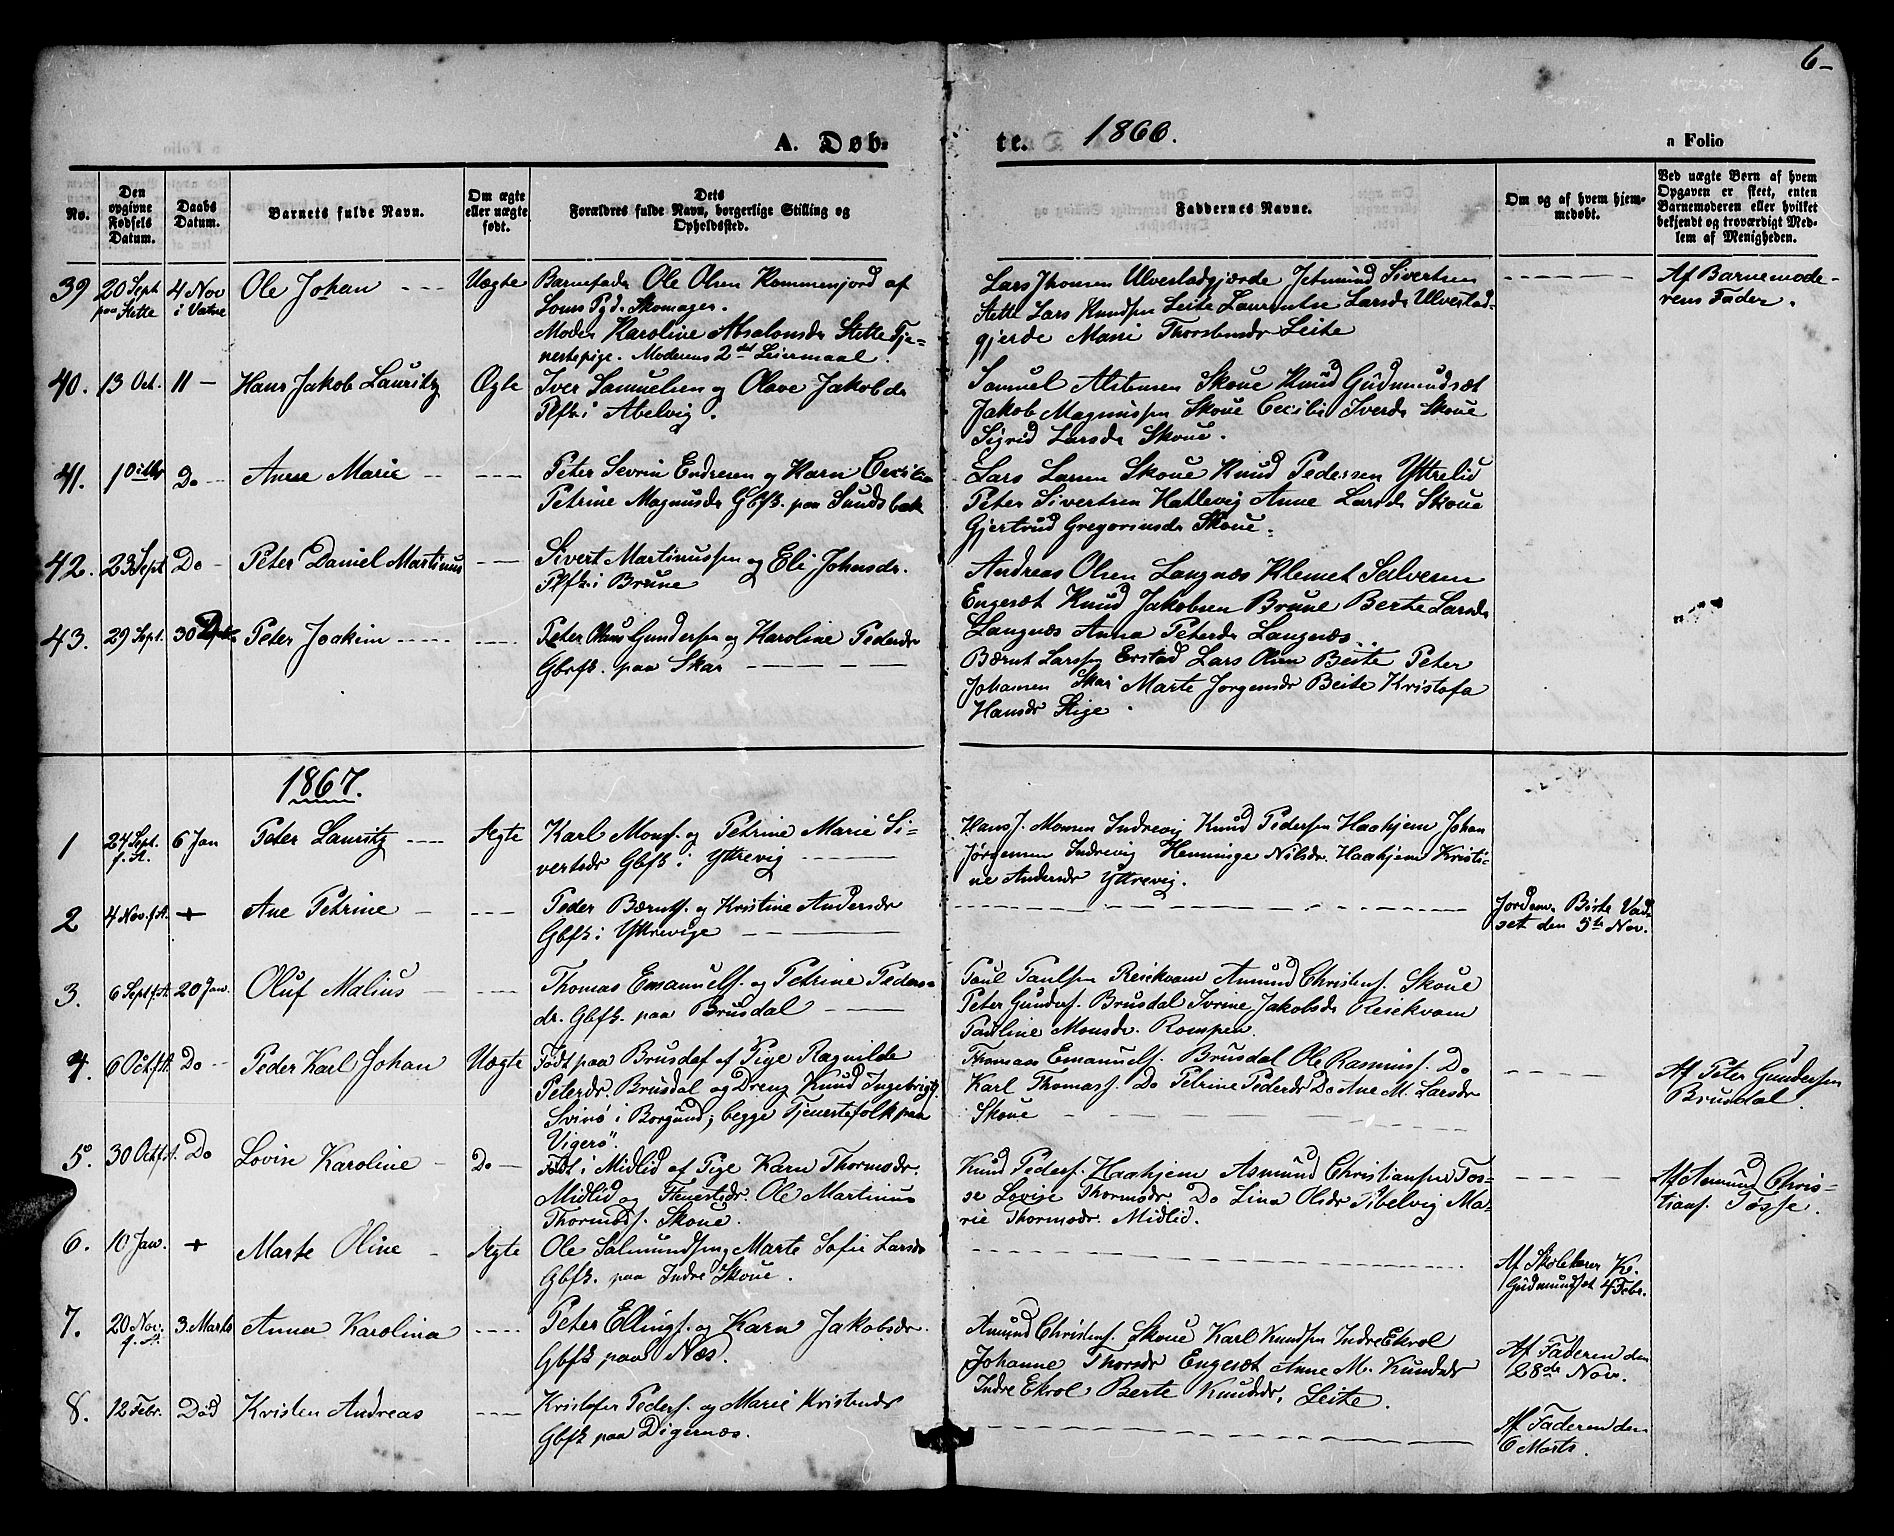 6-
A. Døbte. 1866.
n Folio
No.
Den opgivne Fødsels Datum.
Daabs Datum.
Barnets fulde Navn.
Om ægte eller uægte født.
Dets Forældres fulde Navn, borgerlige Stilling og Opholdssted.
Faddernes Navne.
Om og af hvem hjemmedøbt.
Ved uægte Børn af hvem Opgaven er skeet, enten Barnemoderen eller hvilket bekjendt og troværdigt Medlem af Menigheden.
39 20 Sept paa Slette 4 Nov i Vatne Ole Johan Uægte
Barnefader Ole Olsen Kommenfjord af
Loms Pgd. Skomager.
Moder Karoline Absalonsdr Slette Tje-
nestepige. Moderens 2det Leiermaal.
Lars Jhonsen Ulvestadgjærde Jetmund Sivertsen
Slette Lars Knudsen Leite Laurentse Larsdr Ulvestad-
gjerde Marie Thorstensdr Leite
Af Barnemode-
rens Fader.
40. 13 Oct. 11 - Hans Jakob Lauritz Ægte
Iver Samuelsen og Olave Jakobdr
Plfk i Abelvig.
Samuel Alstensen Skoue Knud Gudmundsæt
Jakob Magnussen Skoue Cecilie Iversdr Skoue
Sigrid Larsdr Skoue.
41. Do Anne Marie
Peter Sevrin Endresen og Karn Cecilia
Petrine Magnusdr Gbfk. paa Sundsbak
Lars Larsen Skoue Knud Pedersen Yttrelid
Peter Sivertsen Hatlevig Anne Larsdr Skoue
Gjertrud Gregoriusdr Skoue.
42. 23 Sept. Do - Peter Daniel Martinus
Sivert Martinussen og Eli Johnsdr.
Plfk i Brune
Andreas Olsen Langnæs Klemet Salvesen
Engesæt Knud Jakobsen Brune Berte Larsdr
Langnæs Anna Petersdr Langnæs
43. 29 Sept. 30 Peter Joakim
Peter Olaus Gundersen og Karoline Pedersdr
Gbrfk. paa Skar
Bærnt Larssen Erstad Lars Olsen Beite Peter
Johansen Skar Marte Jørgensdr Beite Kristofa
Hansdr Stige.
1867.
1 24 Sept. f. A. 6 Jan Peter Lauritz Ægte
Karl Monss. og Petrine Marie Si-
vertsdr Gbfk i Yttrevig
Hans J. Monsen Indrevig Knud Pedersen Haahjem Johan
Jørgensen Indrevig Henninge Nilsdr. Haahjem Kristi-
ne Andersdr Yttrevig.
2 4 Nov. f. A. + Ane Petrine
Peder Bærnts. og Kristine Andersdr
Gbfk i Yttrevige
Jordem. Birte Vad-
set den 5te Nov.
3. 6 Sept f. A. 20 Jan. Oluf Malius
Thomas Emanuels. og Petrine Peders-
dr. Gbfk. paa Brusdal
Paul Paulsen Reiekvam Amund Christens. Skoue
Peter Gunders. Brusdal Ivrine Jakobsdr Reiekvam
Pauline Monsdr. Rompen.
4. 6 Oct. f. A. Do - Peder Karl Johan Uægte
Født paa Brusdal af Pige Ragnilde
Petersdr. Brusdal og Dreng Knud Ingebrigts.
Svinø i Borgund; begge Tjenestefolk paa
Vigerø.
Thomas Emanuels. Brusdal Ole Rasmuss. Do
Karl Thomass. Do Petrine Pedersdr Do Ane M. Larsdr
Skoue
Af Peter Gundersen
Brusdal.
5. 30 Oct f. A. Do Lovise Karoline Do
Født i Midlid af Pige Karn Thormsdr.
Midlid og Ole Martinus
Thormods. Skoue.
Knud Peders. Haahjem Asmund Christiansen Fos-
se Lovise Thormsdr. Do Lina Olsdr Abelvig Ma-
rie Thormodsdr. Midlid.
Af Asmund Chris-
tians. Fosse.
6. 10 Jan. + Marte Oline Ægte
Ole Salmundsen og Marte Sofie Larsdr
Gbfk. paa Indre Skoue.
Af Skolelærer K.
Gudmundsæt 4 Febr.
7. 20 Nov. f. A. 3. Marts Anna Karolina
Peter Ellings. og Karn Jakobsdr.
Gbfk paa Næs.
Amund Christens. Skoue Karl Knudsen Indre Ekrol
Johanne Thorsdr Engesæt Anne M. Knudsdr
Indre Ekrol Berte Knudsdr. Leite.
Af Faderen den
28de Nov.
8. 12 Febr. Død Kristen Andreas
Kristofer Peders. og Marie Kristensdr
Gbfk paa Digernæs.
Af Faderen den
6 Marts.